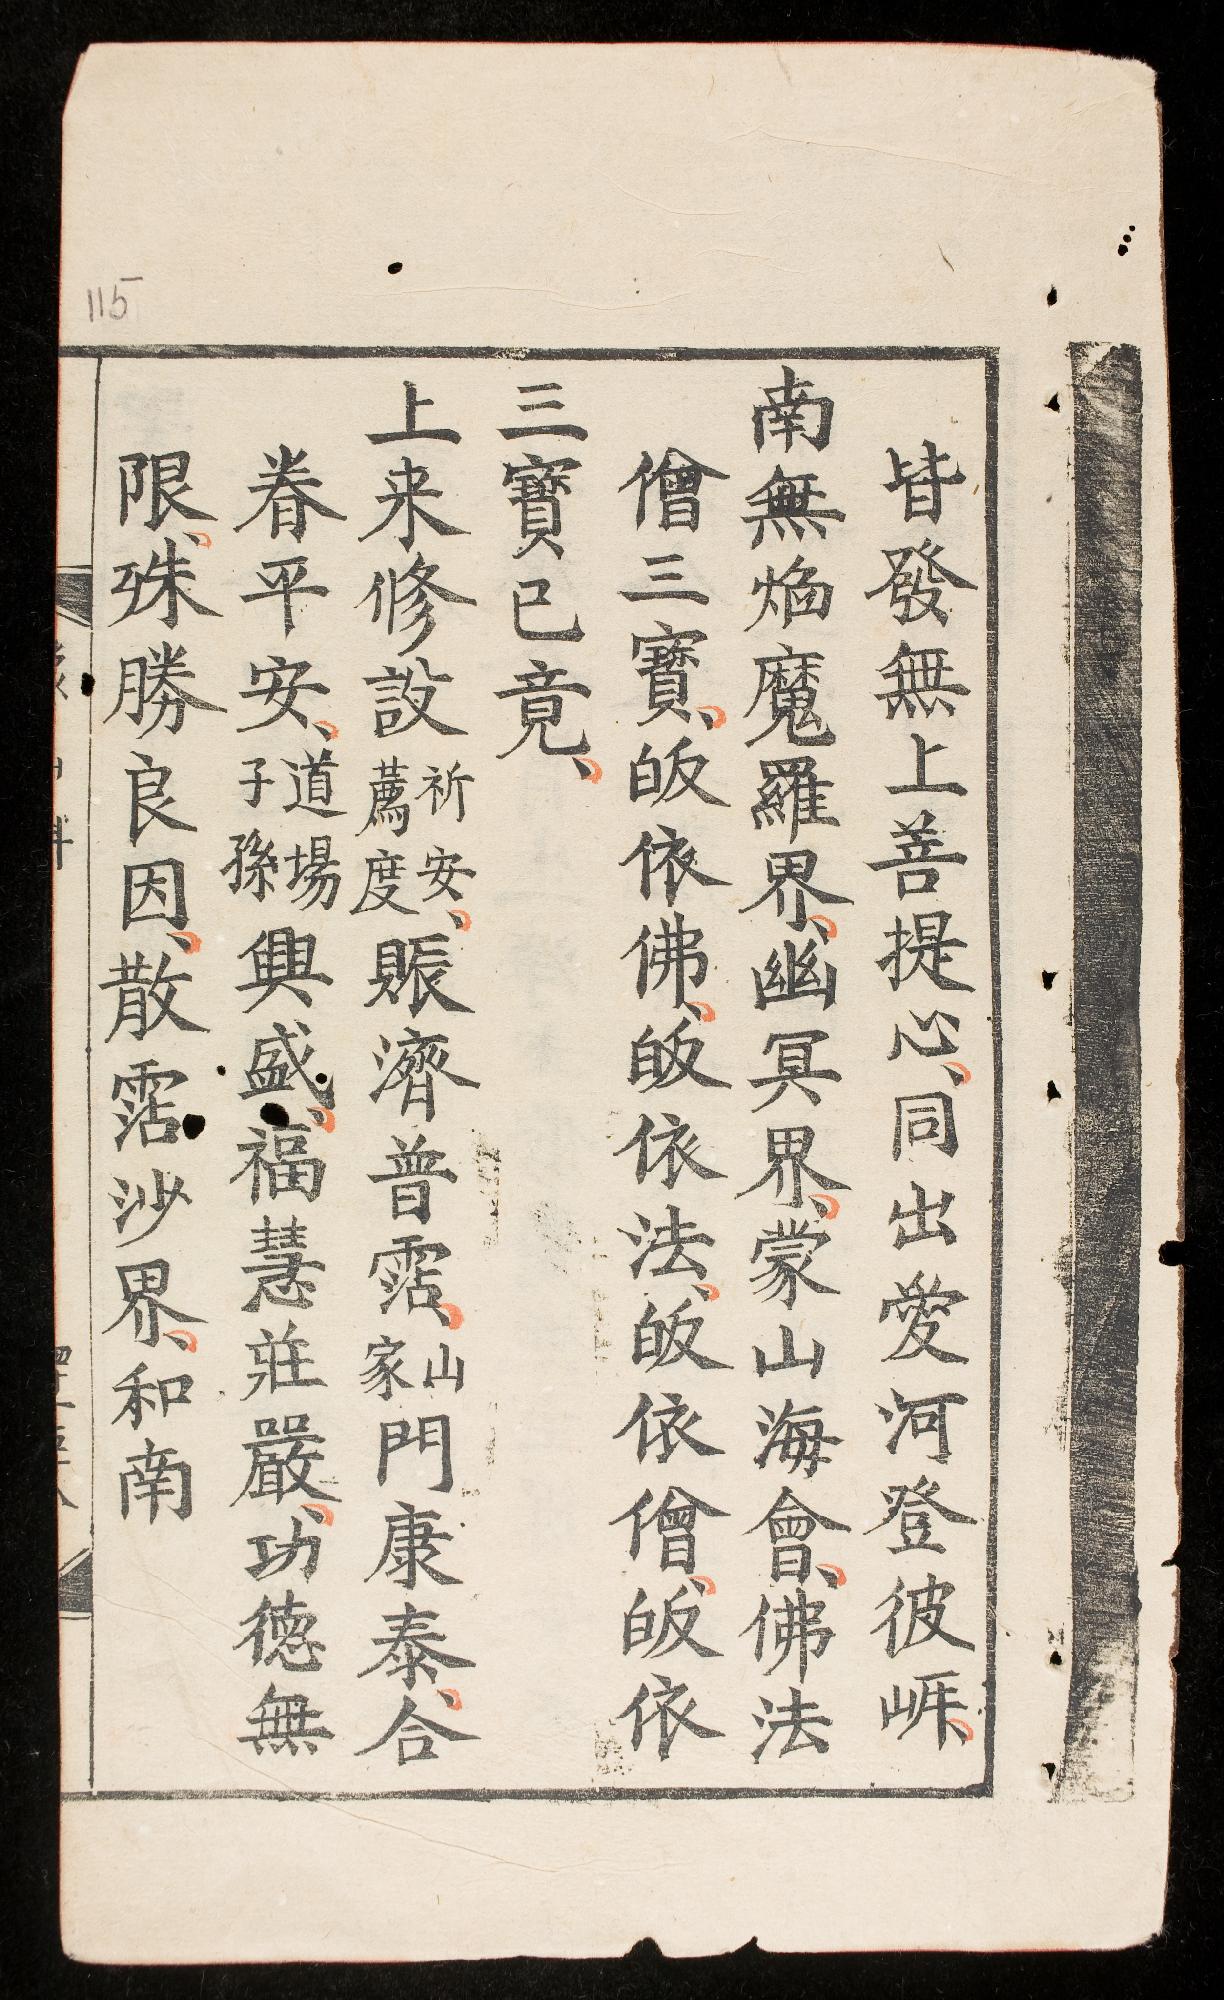 115
皆發無上菩提心、同出愛河登彼崕、
南無焔魔羅界、幽冥界、蒙山海會、佛法
僧三寶、皈依佛、皈依法、皈依僧、皈依
三寶已竟、
上来修設祈安薦度、賑濟普霑、山家門康泰、合
眷平安、道場子孫興盛、福慧莊嚴、功德無
限、殊勝良因、散霑沙界、和南